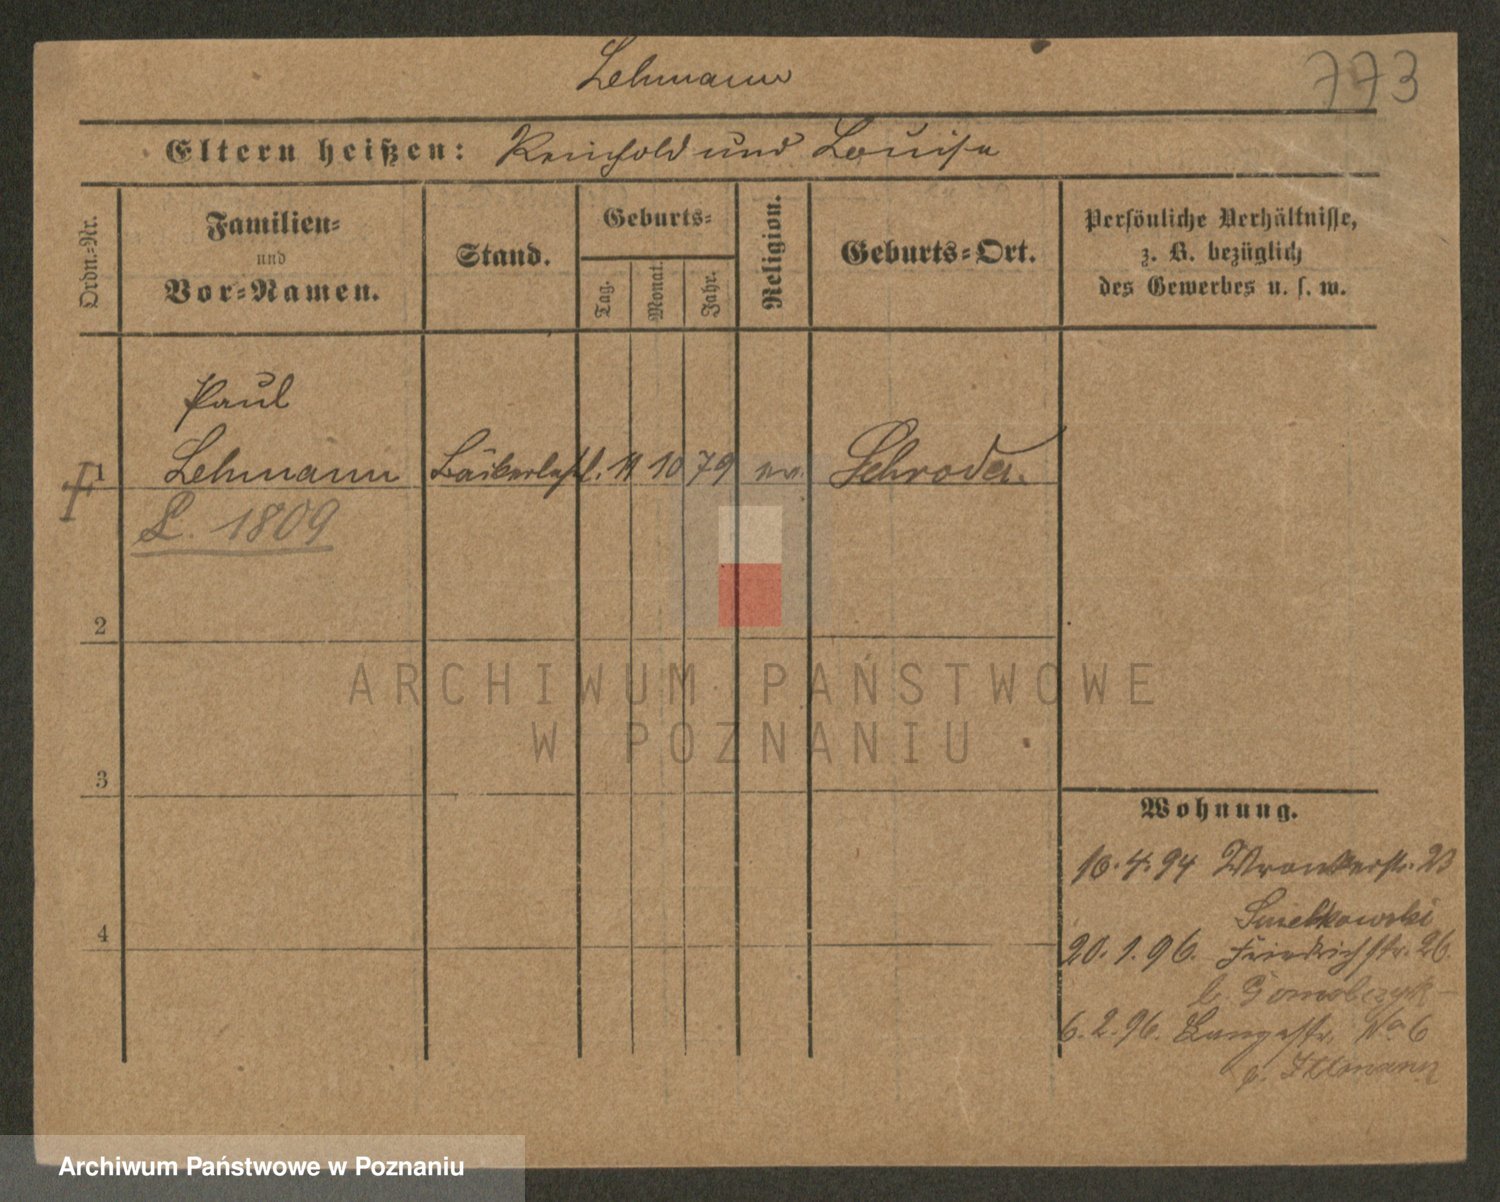 Lehmann
773
Eltern heißen: Reinhold und Louise
Ordn.-Nr.
Familien-
und
Vor-Namen.
Stand.
Geburts-
Tag.
Monat.
Jahr.
Religion.
Geburts-Ort.
Persönliche Verhältnisse,
z. B. bezüglich
des Gewerbes u. s. w.
Paul
1 Lehmann Bäkerlehrl. 11 10 79 ev. Schroda.
L. 1809
2
3
4
Wohnung.
10.4.94 Wronkerstr. 23
Smelkowski
20.1.96. Friedrichstr. 26.
b.
6.2.96. Langestr. No 6
b.
ARCHIWUM PAŃSTWOWE
W POZNANIU
Archiwum Państwowe w Poznaniu